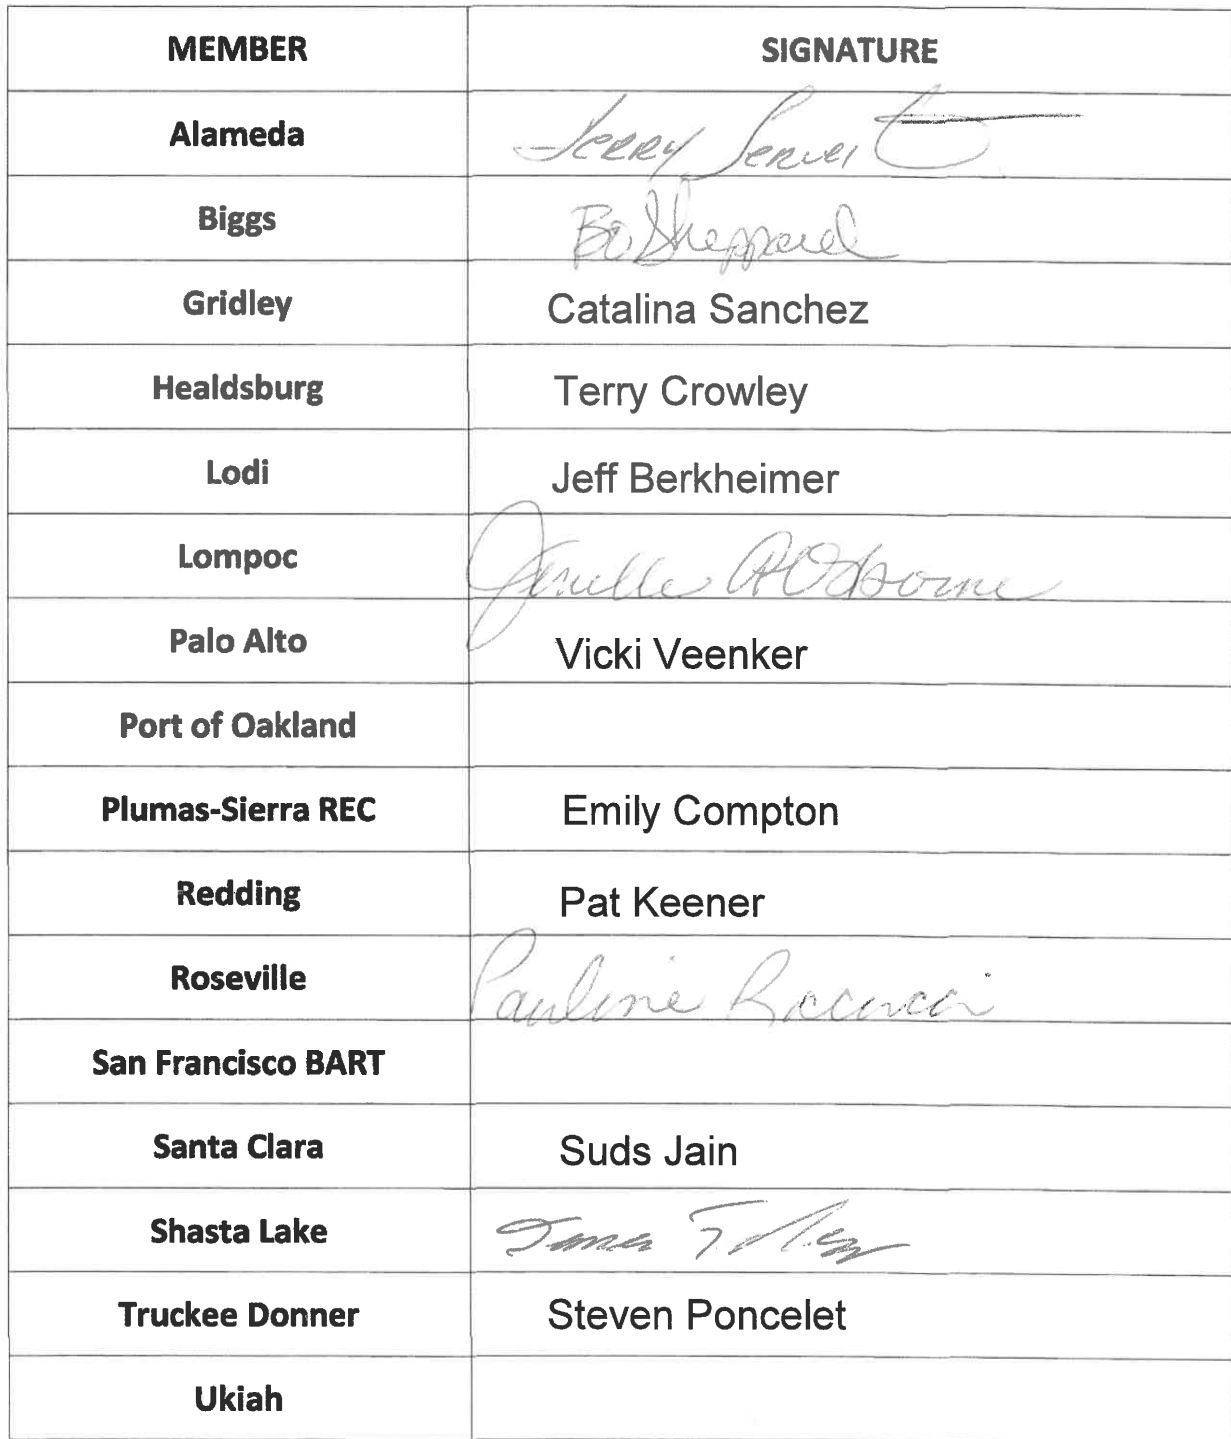 MEMBER SIGNATURE
Alameda Jerry Servent
Biggs Bo Sheppard
Gridley Catalina Sanchez
Healdsburg Terry Crowley
Lodi Jeff Berkheimer
Lompoc Jenelle A Osborne
Palo Alto Vicki Veenker
Port of Oakland
Plumas-Sierra REC Emily Compton
Redding Pat Keener
Roseville Pauline Roccucci
San Francisco BART
Santa Clara Suds Jain
Shasta Lake
Truckee Donner Steven Poncelet
Ukiah